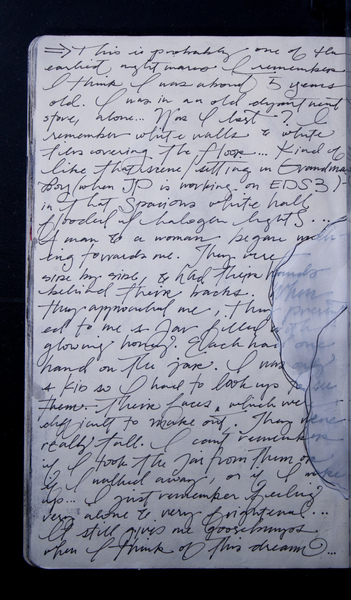 ⇒ This is probably one of the
earliest nightmares I remember
I think I was about 5 years
old. I was in an old department
store, alone... Was I lost? I
remember white walls & white
tiles covering the floor... Kind of
like that scene/setting in Grandma's
Boy (when JP is working on EDS3)
in that spacious white hall
flooded w/ halogen lights...
A man & a woman began
towards me. They were
side by side, & had their hands
behind their backs. When
they approached me, they
ed to me a jar filled with
glowing honey?. Each had one
hand on the jar. I was only
a kid so I had to look up to see
them. Their faces, which were
difficult to make out. They were
really tall. I can't remember
if I took the jar from them or
if I walked away, or if I woke
up... I just remember feeling
very alone & very frightened...
It still gives me goosebumps
when I think of this dream...